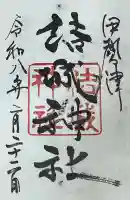 伊勢津
結城神社
令和八年二月二十二日